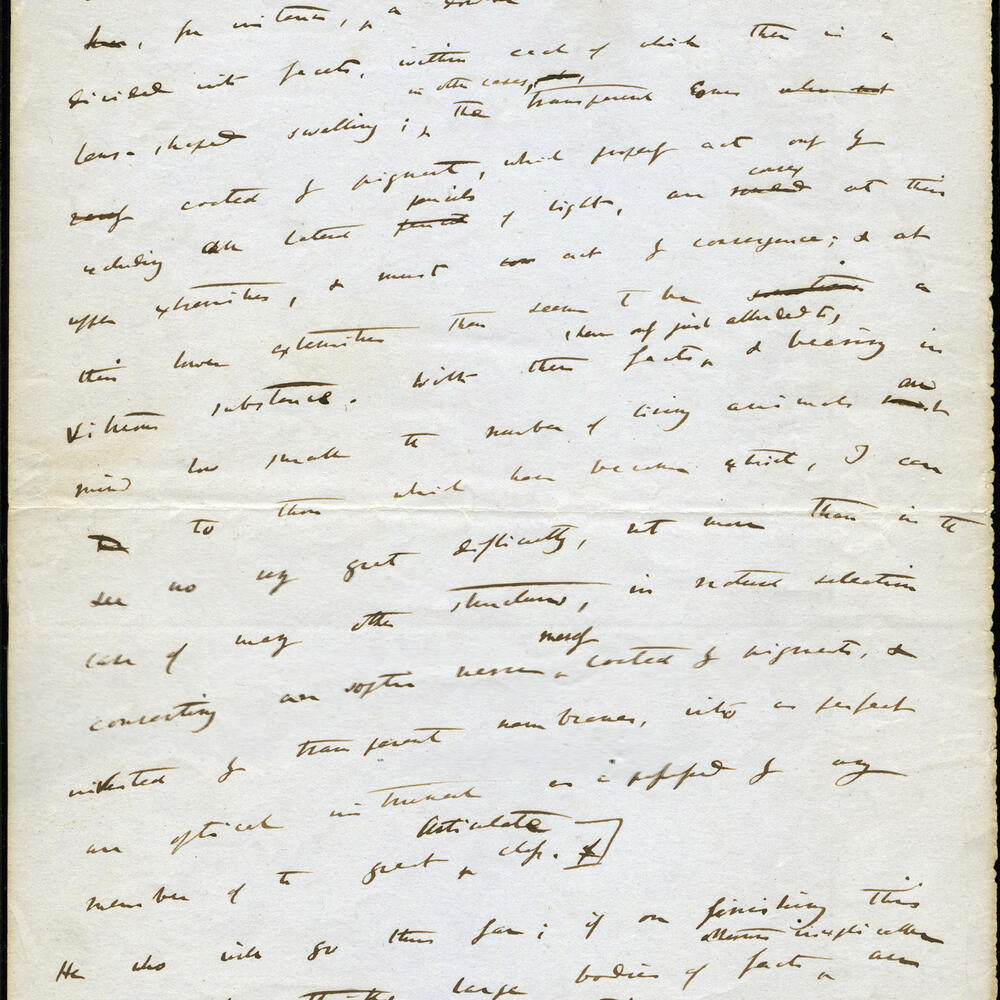 for instance, there is a double
divided into facets, within each of which there is a
in other cases,
lens-shaped swelling; the transparent cones when
coated by pigment, which properly act only by
pencils convex
excluding lateral of light, are at their
upper extremities, & must act by convergence; & at
their lower extremities there seems to be a
here only just alluded to,
vitreous substance. With these facts, & bearing in
are
mind how small the number of living animals
to those which have become extinct, I can
see no very great difficulty, not more than in the
case of many other structures, in natural selection
merely
converting an optic nerve, coated by pigment, &
invested by transparent membranes, into as perfect
an optical instrument as is possessed by any
Articulate
member of the great class.
He who will go thus far; if on finishing this
otherwise inexplicable
large bodies of facts, are